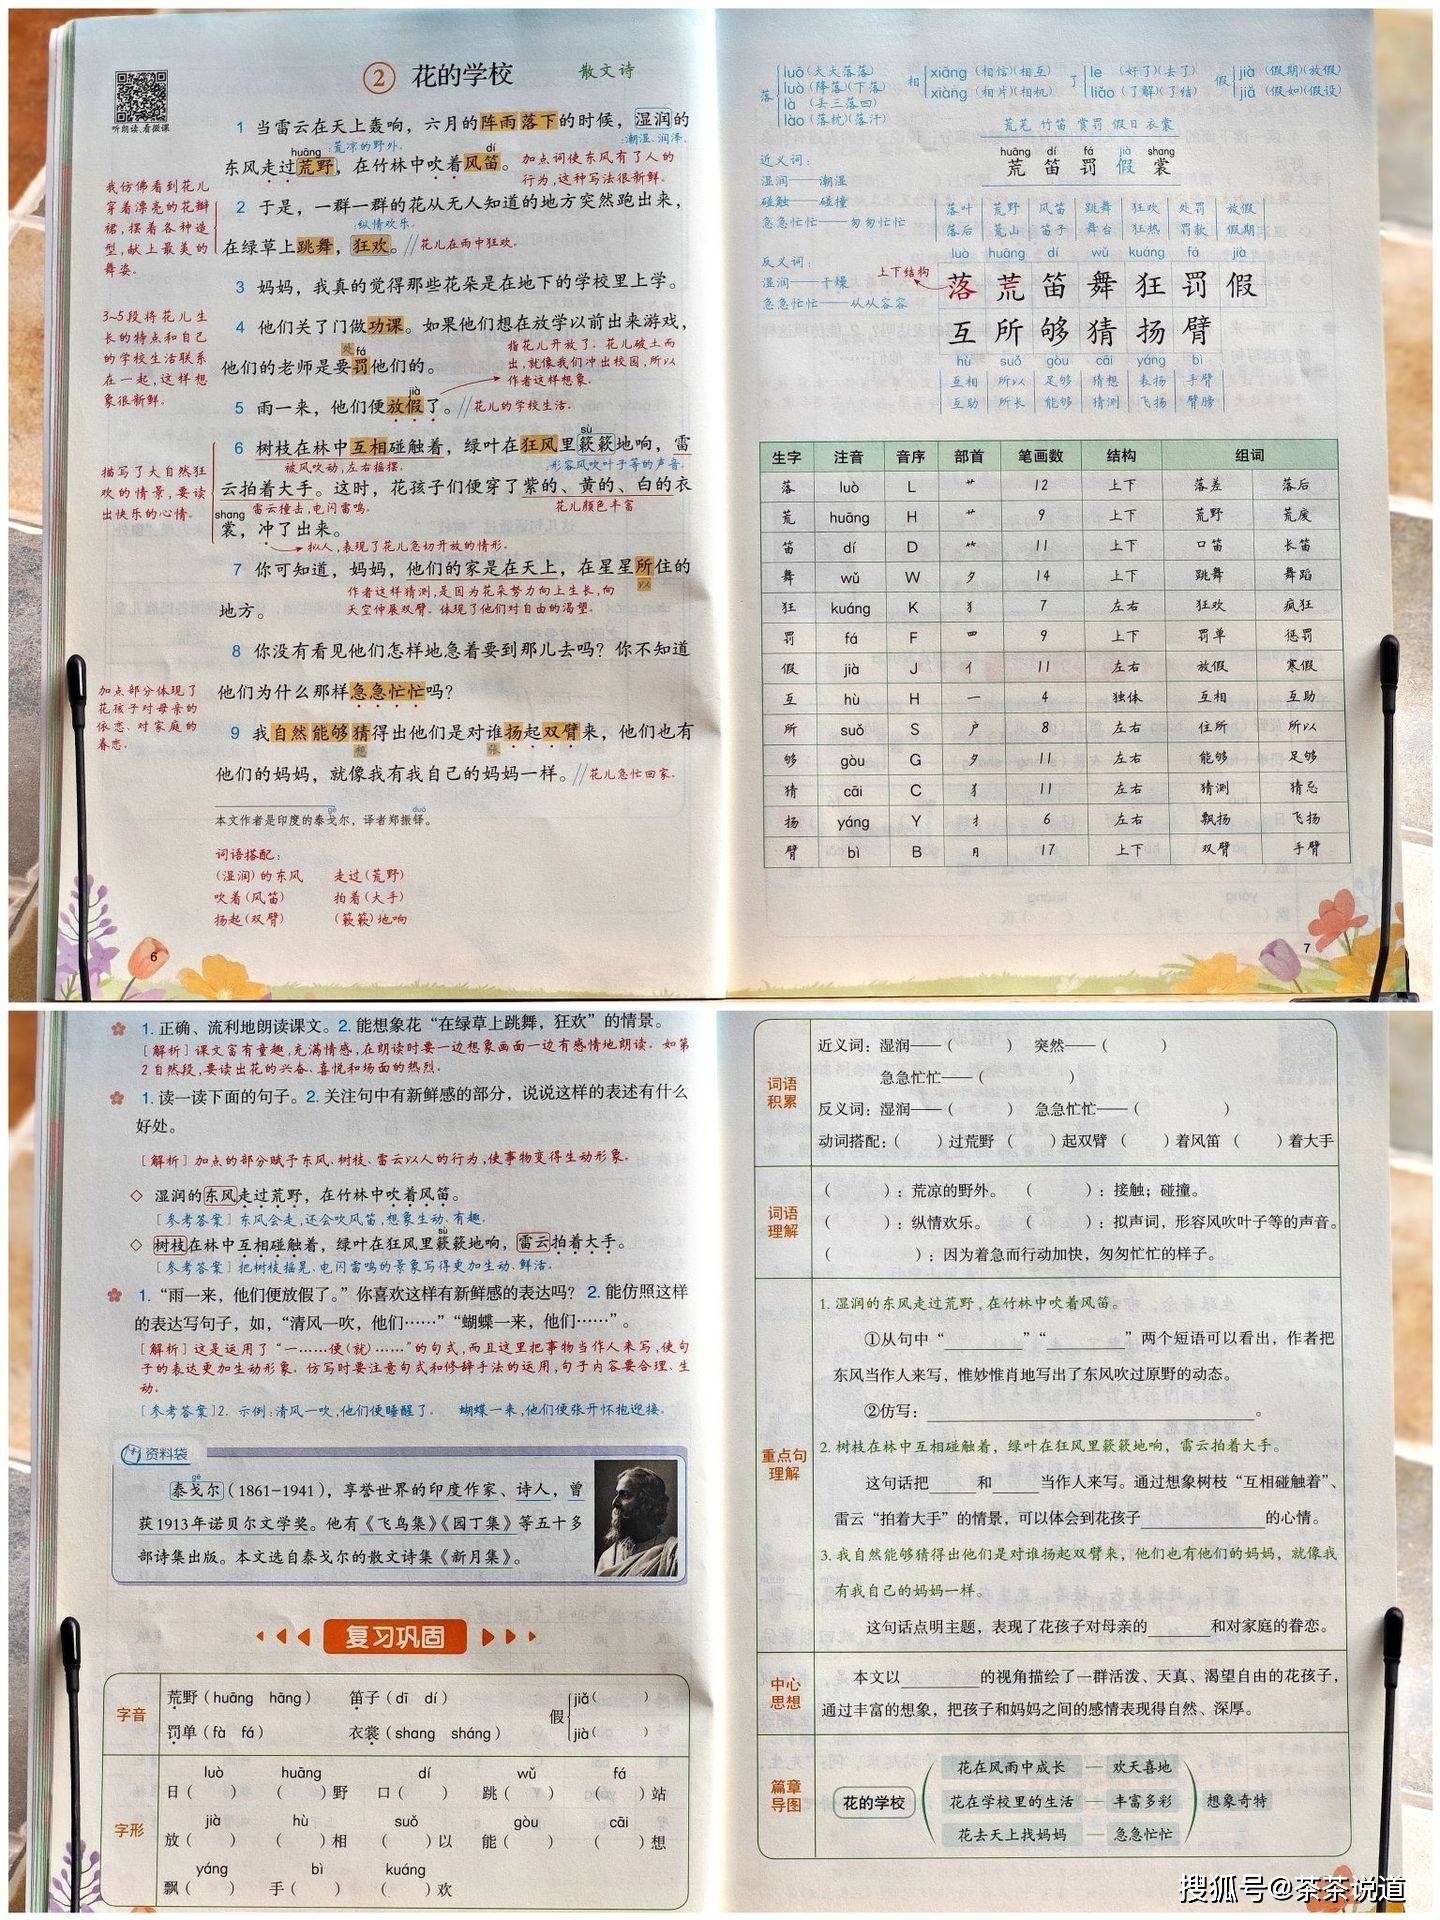 ② 花的学校 散文诗
听朗读,看微课
1 当雷云在天上轰响，六月的阵雨落下的时候，湿润的
:荒凉的野外。
:潮湿、润泽。
huāng
dí
东风走过荒野，在竹林中吹着风笛。
加点词使东风有了人的
行为,这种写法很新鲜。
我仿佛看到花儿
穿着漂亮的花瓣
裙,摆着各种造
型,献上最美的
舞姿。
2 于是，一群一群的花从无人知道的地方突然跑出来，
:纵情欢乐。
在绿草上跳舞，狂欢。//花儿在雨中狂欢。
3 妈妈，我真的觉得那些花朵是在地下的学校里上学。
3~5段将花儿生
长的特点和自己
的学校生活联系
在一起,这样想
象很新鲜。
4 他们关了门做功课。如果他们想在放学以前出来游戏，
处 fá
他们的老师是要罚他们的。
指花儿开放了。花儿破土而
出,就像我们冲出校园,所以
作者这样想象。
jià
5 雨一来，他们便放假了。//花儿的学校生活。
sù
6 树枝在林中互相碰触着，绿叶在狂风里簌簌地响，雷
被风吹动,左右摇摆。
:形容风吹叶子等的声音。
描写了大自然狂
欢的情景,要读
出快乐的心情。
云拍着大手。这时，花孩子们便穿了紫的、黄的、白的衣
shang
雷云撞击,电闪雷鸣。
花儿颜色丰富
裳，冲了出来。
拟人,表现了花儿急切开放的情形。
7 你可知道，妈妈，他们的家是在天上，在星星所住的
以
作者这样猜测,是因为花朵努力向上生长,向
天空伸展双臂。体现了他们对自由的渴望。
地方。
8 你没有看见他们怎样地急着要到那儿去吗？你不知道
他们为什么那样急急忙忙吗？
加点部分体现了
花孩子对母亲的
依恋、对家庭的
眷恋。
9 我自然能够猜得出他们是对谁扬起双臂来，他们也有
想
张
他们的妈妈，就像我有我自己的妈妈一样。//花儿急忙回家。
gē
duó
本文作者是印度的泰戈尔，译者郑振铎。
词语搭配:
(湿润)的东风 走过(荒野)
吹着(风笛) 拍着(大手)
扬起(双臂) (簌簌)地响
6
落 luō(大大落落)
luò(降落)(下落)
là (丢三落四)
lào(落枕)(落汗)
相 xiāng(相信)(相互)
xiàng(相片)(相机)
了 le (好了)(去了)
liǎo(了解)(了结)
假 jià(假期)(放假)
jiǎ(假如)(假设)
荒芜 竹笛 赏罚 假日 衣裳
huāng dí fá jià shang
荒 笛 罚 假 裳
近义词:
湿润——潮湿
碰触——碰撞
急急忙忙——匆匆忙忙
反义词:
湿润——干燥
急急忙忙——从从容容
落叶 荒野 风笛 跳舞 狂欢 处罚 放假
落后 荒山 笛子 舞台 狂热 罚款 假期
上下结构
luò huāng dí wǔ kuáng fá jià
落 荒 笛 舞 狂 罚 假
互 所 够 猜 扬 臂
hù suǒ gòu cāi yáng bì
互相 所以 足够 猜想 表扬 手臂
互助 所长 能够 猜测 飞扬 臂膀
生字 注音 音序 部首 笔画数 结构 组词
落 luò L 艹 12 上下 落差 落后
荒 huāng H 艹 9 上下 荒野 荒废
笛 dí D ⺮ 11 上下 口笛 长笛
舞 wǔ W 夕 14 上下 跳舞 舞蹈
狂 kuáng K 犭 7 左右 狂欢 疯狂
罚 fá F 罒 9 上下 罚单 惩罚
假 jià J 亻 11 左右 放假 寒假
互 hù H 一 4 独体 互相 互助
所 suǒ S 户 8 左右 住所 所以
够 gòu G 夕 11 左右 能够 足够
猜 cāi C 犭 11 左右 猜测 猜忌
扬 yáng Y 扌 6 左右 飘扬 飞扬
臂 bì B 月 17 上下 双臂 手臂
7
1. 正确、流利地朗读课文。2. 能想象花“在绿草上跳舞，狂欢”的情景。
[解析]课文富有童趣,充满情感,在朗读时要一边想象画面一边有感情地朗读。如第
2自然段,要读出花的兴奋、喜悦和场面的热烈。
1. 读一读下面的句子。2. 关注句中有新鲜感的部分，说说这样的表述有什么
好处。
[解析]加点的部分赋予东风、树枝、雷云以人的行为,使事物变得生动形象。
◇ 湿润的东风走过荒野，在竹林中吹着风笛。
[参考答案]东风会走,还会吹风笛,想象生动、有趣。
sù
◇ 树枝在林中互相碰触着，绿叶在狂风里簌簌地响，雷云拍着大手。
[参考答案]把树枝摇晃、电闪雷鸣的景象写得更加生动、鲜活。
1. “雨一来，他们便放假了。”你喜欢这样有新鲜感的表达吗？ 2. 能仿照这样
的表达写句子，如，“清风一吹，他们……”“蝴蝶一来，他们……”。
[解析]这是运用了“一……便(就)……”的句式,而且这里把事物当作人来写,使句
子的表达更加生动形象。仿写时要注意句式和修辞手法的运用,句子内容要合理、生
动。
[参考答案]2. 示例:清风一吹,他们便睡醒了。 蝴蝶一来,他们便张开怀抱迎接。
资料袋
gē
泰戈尔(1861-1941)，享誉世界的印度作家、诗人，曾
获1913年诺贝尔文学奖。他有《飞鸟集》《园丁集》等五十多
部诗集出版。本文选自泰戈尔的散文诗集《新月集》。
复习巩固
字音
荒野(huāng hāng) 笛子(dī dí) 假 jiǎ( )
罚单(fà fá) 衣裳(shang sháng) jià( )
字形
luò huāng dí wǔ fá
日( ) ( )野 口( ) 跳( ) ( )站
jià hù suǒ gòu cāi
放( ) ( )相 ( )以 能( ) ( )想
yáng bì kuáng
飘( ) 手( ) ( )欢
词语积累
近义词：湿润——( ) 突然——( )
急急忙忙——( )
反义词：湿润——( ) 急急忙忙——( )
动词搭配：( )过荒野 ( )起双臂 ( )着风笛 ( )着大手
词语理解
( )：荒凉的野外。 ( )：接触；碰撞。
( )：纵情欢乐。 ( )：拟声词，形容风吹叶子等的声音。
( )：因为着急而行动加快，匆匆忙忙的样子。
重点句理解
1. 湿润的东风走过荒野，在竹林中吹着风笛。
①从句中“________”“________”两个短语可以看出，作者把
东风当作人来写，惟妙惟肖地写出了东风吹过原野的动态。
②仿写：________________。
2. 树枝在林中互相碰触着，绿叶在狂风里簌簌地响，雷云拍着大手。
这句话把_____和_____当作人来写。通过想象树枝“互相碰触着”、
雷云“拍着大手”的情景，可以体会到花孩子____________的心情。
3. 我自然能够猜得出他们是对谁扬起双臂来，他们也有他们的妈妈，就像我
有我自己的妈妈一样。
这句话点明主题，表现了花孩子对母亲的______和对家庭的眷恋。
中心思想
本文以________的视角描绘了一群活泼、天真、渴望自由的花孩子，
通过丰富的想象，把孩子和妈妈之间的感情表现得自然、深厚。
篇章导图
花的学校
花在风雨中成长 — 欢天喜地
花在学校里的生活 — 丰富多彩
花去天上找妈妈 — 急急忙忙
想象奇特
搜狐号@茶茶说道